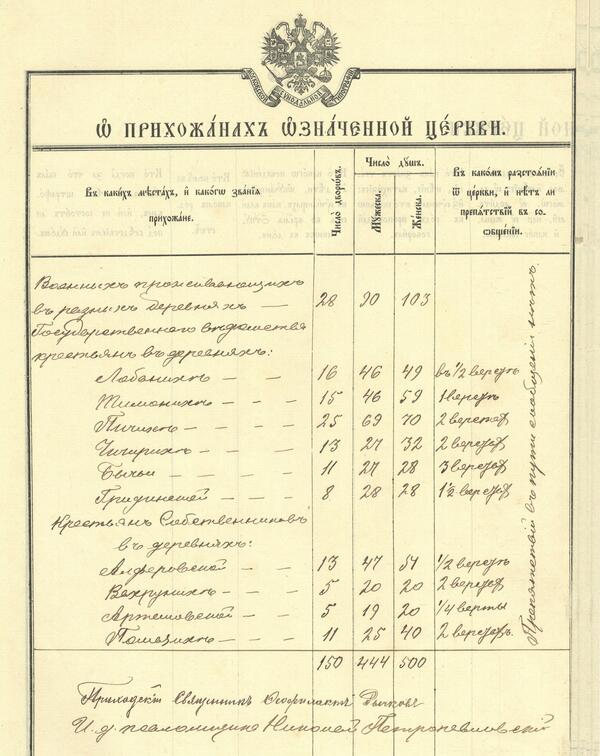 МОСКОВСКОЙ СѴНОДАЛЬНОЙ ТИПОГРАФІИ
Ѡ ПРИХОЖА́НАХЪ Ѡ҆ЗНА́ЧЕННОЙ ЦЕ́РКВИ.
Въ каки́хъ мѣста́хъ, и҆ како́гѡ зва́нїѧ прихожа́не.
Число̀ дворѡ́въ.
Число̀ ду́шъ.
Мꙋ́жеска
Же́нска.
Въ како́мъ разстоѧ́нїи ѿ це́ркви, и҆ нѣ́тъ ли препѧ́тствїй въ соѻбще́нїи.
Военныхъ проживающихъ
въ разныхъ деревняхъ — 28 90 103
Государственнаго вѣдомства
крестьянъ въ деревняхъ:
Лобанихѣ — — 16 46 49 въ 1/2 верстѣ
Тимонихѣ — — 15 46 59 1 верстѣ
Пичихѣ — — — 25 69 70 2 верстах
Чигирихѣ — — 13 27 32 2 верстах
Бычьи — — — 11 27 28 3 верстах
Гридинской — — — 8 28 28 1 1/2 верстах
Крестьянъ Собственниковъ
въ деревняхъ:
Алферовской — — 13 47 51 1/2 верстѣ
Вахрушихѣ — — 5 20 20 2 верстах
Артемовской — — 5 19 20 1/4 версты
Помазихѣ — — — 11 25 40 2 верстахъ.
Препятствій въ пути сообщенія нѣтъ.
150 444 500
Приходскій Священникъ Ѳеофилактъ Рычковъ
И. д. псаломщика Николай Петропавловскій